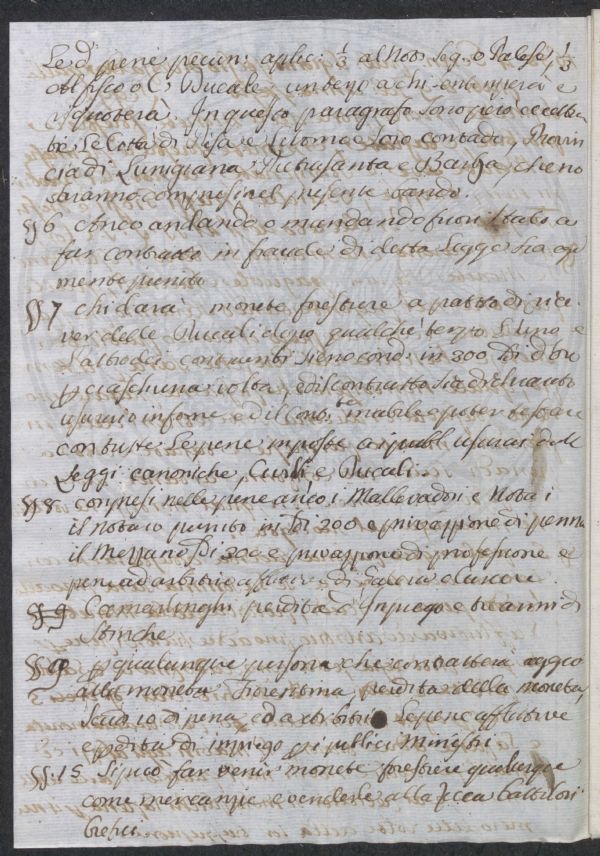 Le d.e pene pecun: applic: 1/3 al Not.o Seg.o o Palese, 1/3
al fisco o C. Ducale un terzo a chi
riquoterà. In questo paragrafo sono però eccettu
te le Città di Pisa e Livorno e loro contado, Provin
cia di Lunigiana Pietrasanta e Barga, che no
saranno compresi nel presente bando.
§§ 6 Anco andando o mandando fuori Stato a
far contratto in fraude di detta Legge sia
mente punito
§§ 7 chi darà monete forestiere a patto di rice
ver delle Ducali dopo qualche tempo l'uno e
l'altro dei contraenti sieno cond: in 300 Di d'oro
p ciascheduna volta, e di contratto sia dichiarato
usuraio infame, ed il Cont.to inabile e poter testare
con tutte le pene imposte a i pubbl: usurai dalle
Leggi canoniche Civili e Ducali.
§§ 8 compresi nelle pene anco i Mallevadori e Notai
il Notaio punito in Di 200 e privazione di penna
il Mezzano Di 200 e privazione di professione e
pene ad arbitrio a fuori di Galera e
§§ 9 Camarlinghi perdita d'Impiego e tre anni di
Stinche
§§ p qualunque persona che contratterà aggio
alla moneta Fiorentina perdita della moneta,
scudi 10 di pena ed arbitrio Le pene afflittive
e perdita di impiego p i pubblici Ministri
§§. 15 Si può far venir monete forestiere qualunque
come mercanzie e venderle alla Zecca battilori
Orefici